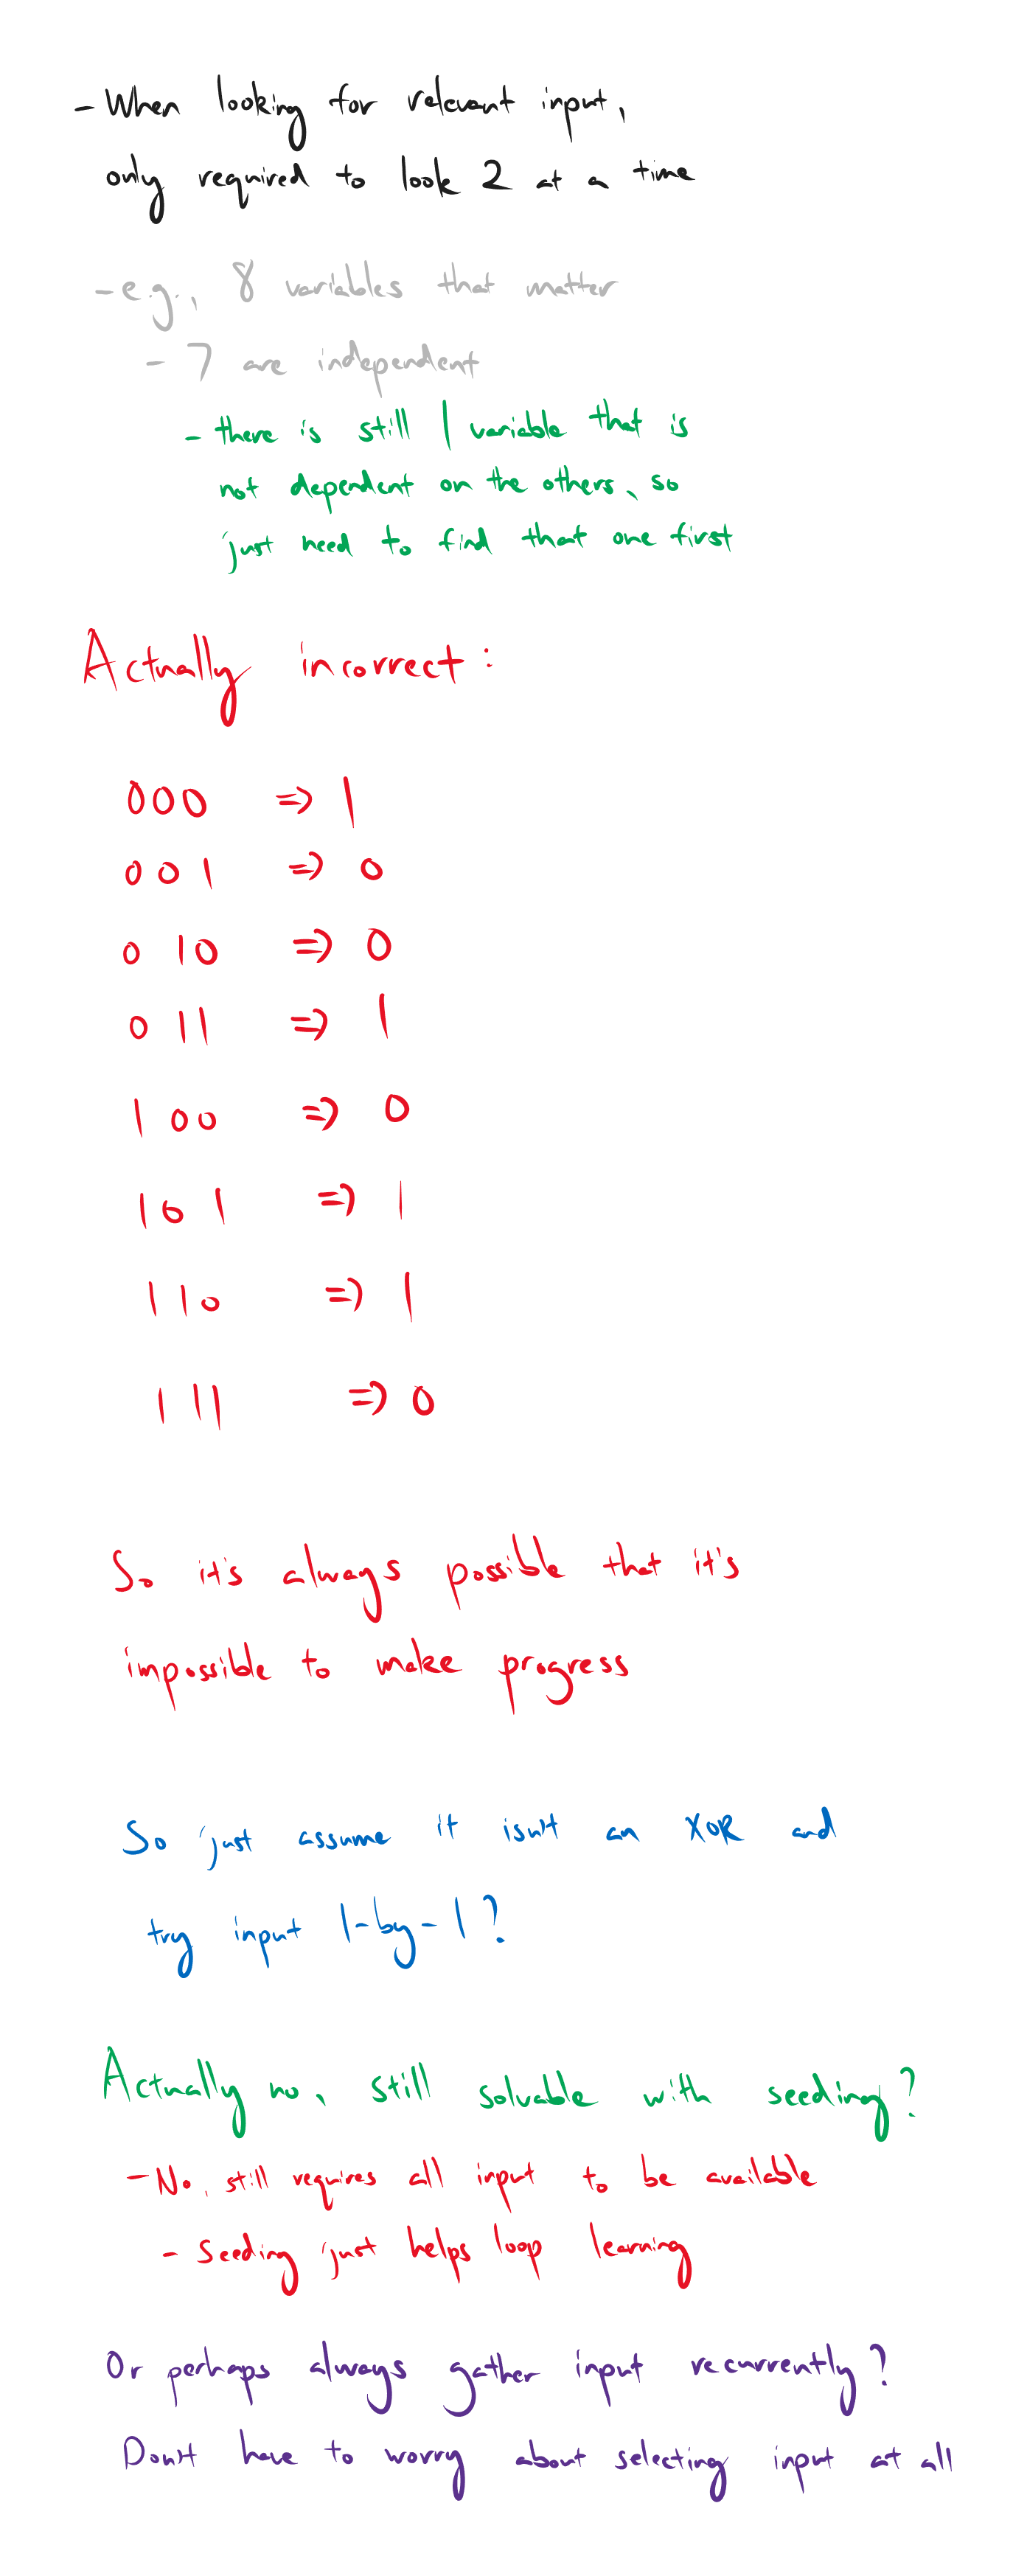 - When looking for relevant input,
only required to look 2 at a time
- e.g., 8 variables that matter
- 7 are independent
- there is still 1 variable that is
not dependent on the others, so
just need to find that one first
Actually incorrect:
000 => 1
001 => 0
010 => 0
011 => 1
100 => 0
101 => 1
110 => 1
111 => 0
So it's always possible that it's
impossible to make progress
So just assume it isn't an XOR and
try input 1-by-1?
Actually no, still solvable with seeding?
- No, still requires all input to be available
- Seeding just helps loop learning
Or perhaps always gather input recurrently?
Don't have to worry about selecting input at all